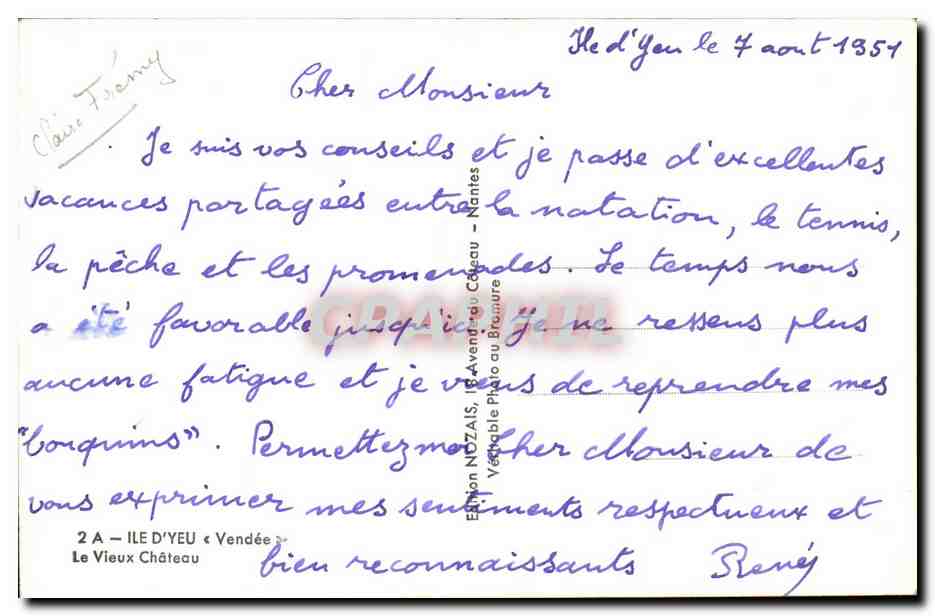 Ile d'Yeu le 7 aout 1951
Claire Frémy
Cher Monsieur
Je suis vos conseils et je passe d'excellentes
vacances partagées entre la natation, le tennis,
la pêche et les promenades. Le temps nous
a été favorable jusqu'ici. Je ne ressens plus
aucune fatigue et je viens de reprendre mes
"bouquins". Permettez moi Cher Monsieur de
vous exprimer mes sentiments respectueux et
bien reconnaissants René
2 A — ILE D'YEU « Vendée »
Le Vieux Château
Edition NOZAIS, 18 Avenue du Côteau — Nantes
Véritable Photo au Bromure
CPARAMA